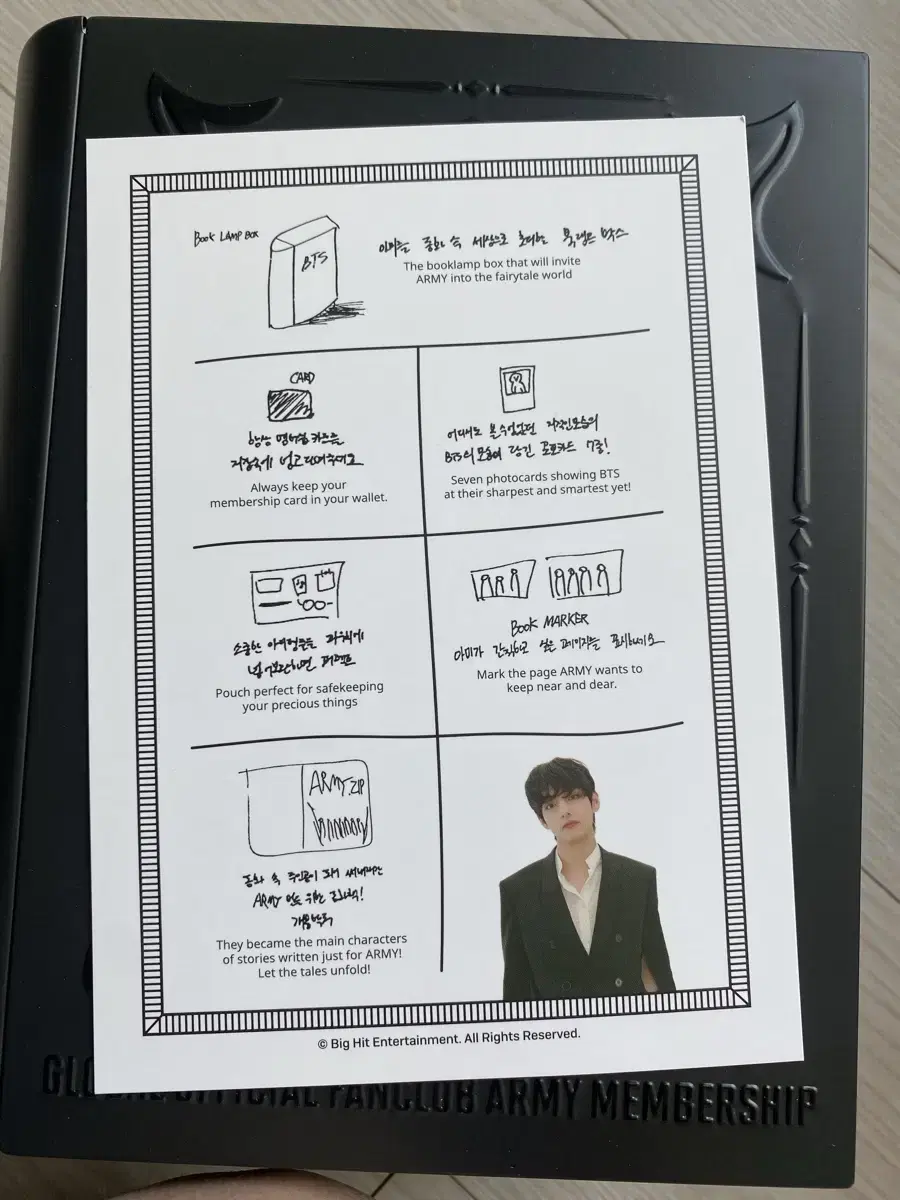 BOOK LAMP BOX
BTS
동화 속 세상으로 초대하는 북램프 박스
The booklamp box that will invite
ARMY into the fairytale world
CARD
항상 멤버쉽 카드를
지갑속에 넣고 다녀주세요
Always keep your
membership card in your wallet.
어디서도 볼 수 없었던 지적인모습의
BTS의 모습이 담긴 포토카드 7종!
Seven photocards showing BTS
at their sharpest and smartest yet!
소중한 아이템들을 파우치에
넣
Pouch perfect for safekeeping
your precious things
BOOK MARKER
아미가 간직하고 싶은 페이지를 표시하세요
Mark the page ARMY wants to
keep near and dear.
ARMY ZIP
동화 속 주인공이 되어
ARMY 만을 위한
They became the main characters
of stories written just for ARMY!
Let the tales unfold!
© Big Hit Entertainment. All Rights Reserved.
GLOBAL OFFICIAL FANCLUB ARMY MEMBERSHIP